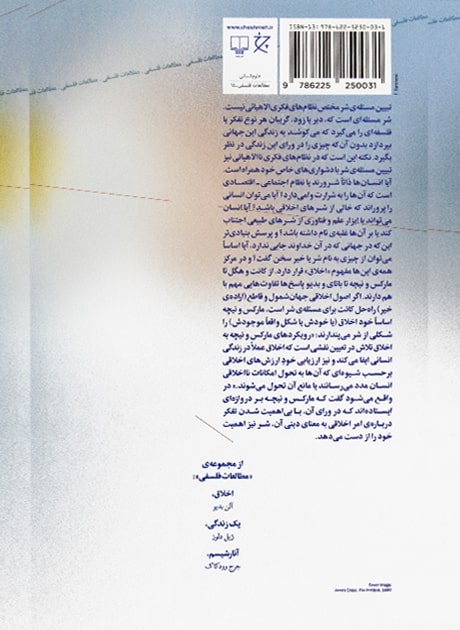 www.cheshmeh.ir
ISBN-13: 978-622-5250-03-1
9 786225 250031
چشمه
علوم‌انسانی
مطالعات فلسفی-۱۵
مطالعات فلسفی مطالعات فلسفی مطالعات فلسفی مطالعات فلسفی
تبیین مسئله‌ی شر مختص نظام‌های فکری الاهیاتی نیست.
شر مسئله‌ای است که، دیر یا زود، گریبان هر نوع تفکر یا
فلسفه‌ای را می‌گیرد که می‌کوشد به زندگی این جهانی
بپردازد بدون آن که چیزی را در ورای این زندگی در نظر
بگیرد. نکته این است که در نظام‌های فکری ناالاهیاتی نیز
تبیین مسئله‌ی شر با دشواری‌های خاص خودهمراه است.
آیا انسان‌ها ذاتاً شرورند یا نظام اجتماعی ـ اقتصادی
است که آن‌ها را به شرارت وامی‌دارد؟ آیا می‌توان انسانی
را پروراند که خالی از شرهای اخلاقی باشد؟ آیا انسان
می‌تواند با ابزار علم و فناوری از شرهای طبیعی اجتناب
کند یا بر آن‌ها غلبه‌ی تام داشته باشد؟ و پرسش بنیادی‌تر
این که در جهانی که در آن خداوند جایی ندارد، آیا اساساً
می‌توان از چیزی به نام شر یا خیر سخن گفت؟ و در مرکز
همه‌ی این‌ها مفهوم «اخلاق» قرار دارد. از کانت و هگل تا
مارکس و نیچه تا باتای و بدیو پاسخ‌ها تفاوت‌هایی مهم با
هم دارند. اگر اصول اخلاقی جهان‌شمول و قاطع (اراده‌ی
خیر) راه‌حل کانت برای مسئله‌ی شر است، مارکس و نیچه
اساساً خود اخلاق (یا خودش یا شکل واقعاً موجودش) را
شکلی از شر می‌پندارند: «رویکردهای مارکس و نیچه به
اخلاق تلاش در تعیین نقشی است که اخلاق عملاً در زندگی
انسانی ایفا می‌کند و نیز ارزیابی خود ارزش‌های اخلاقی
برحسب شیوه‌ای که آن‌ها به تحول امکانات نااخلاقی
انسان مدد می‌رسانند یا مانع آن تحول می‌شوند.» در
واقع می‌شود گفت که مارکس و نیچه بر دروازه‌ای
ایستاده‌اند که در ورای آن، با بی‌اهمیت شدن تفکر
درباره‌ی امر اخلاقی به معنای دینی آن، شر نیز اهمیت
خود را از دست می‌دهد.
از مجموعه‌ی
«مطالعات فلسفی»:
اخلاق،
آلن بدیو
یک زندگی،
ژیل دلوز
آنارشیسم،
جرج وودکاک